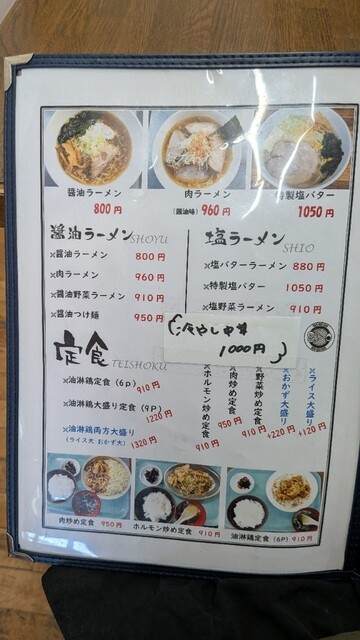 醤油ラーメン
800円
肉ラーメン
(醤油味) 960円
特製塩バター
1050円
醤油ラーメン SHOYU
×醤油ラーメン 800円
×肉ラーメン 960円
×醤油野菜ラーメン 910円
×醤油つけ麺 950円
塩ラーメン SHIO
×塩バターラーメン 880円
×特製塩バター 1050円
×塩野菜ラーメン 910円
冷やし中華
1000円
定食 TEISHOKU
×油淋鶏定食(6p) 910円
×油淋鶏大盛り定食(9P) 1220円
×油淋鶏両方大盛り
(ライス大 おかず大) 1320円
×ホルモン炒め定食 910円
×肉炒め定食 950円
×野菜炒め定食 910円
×おかず大盛り +220円
×ライス大盛り +120円
肉炒め定食 950円
ホルモン炒め定食 910円
油淋鶏定食(6P) 910円